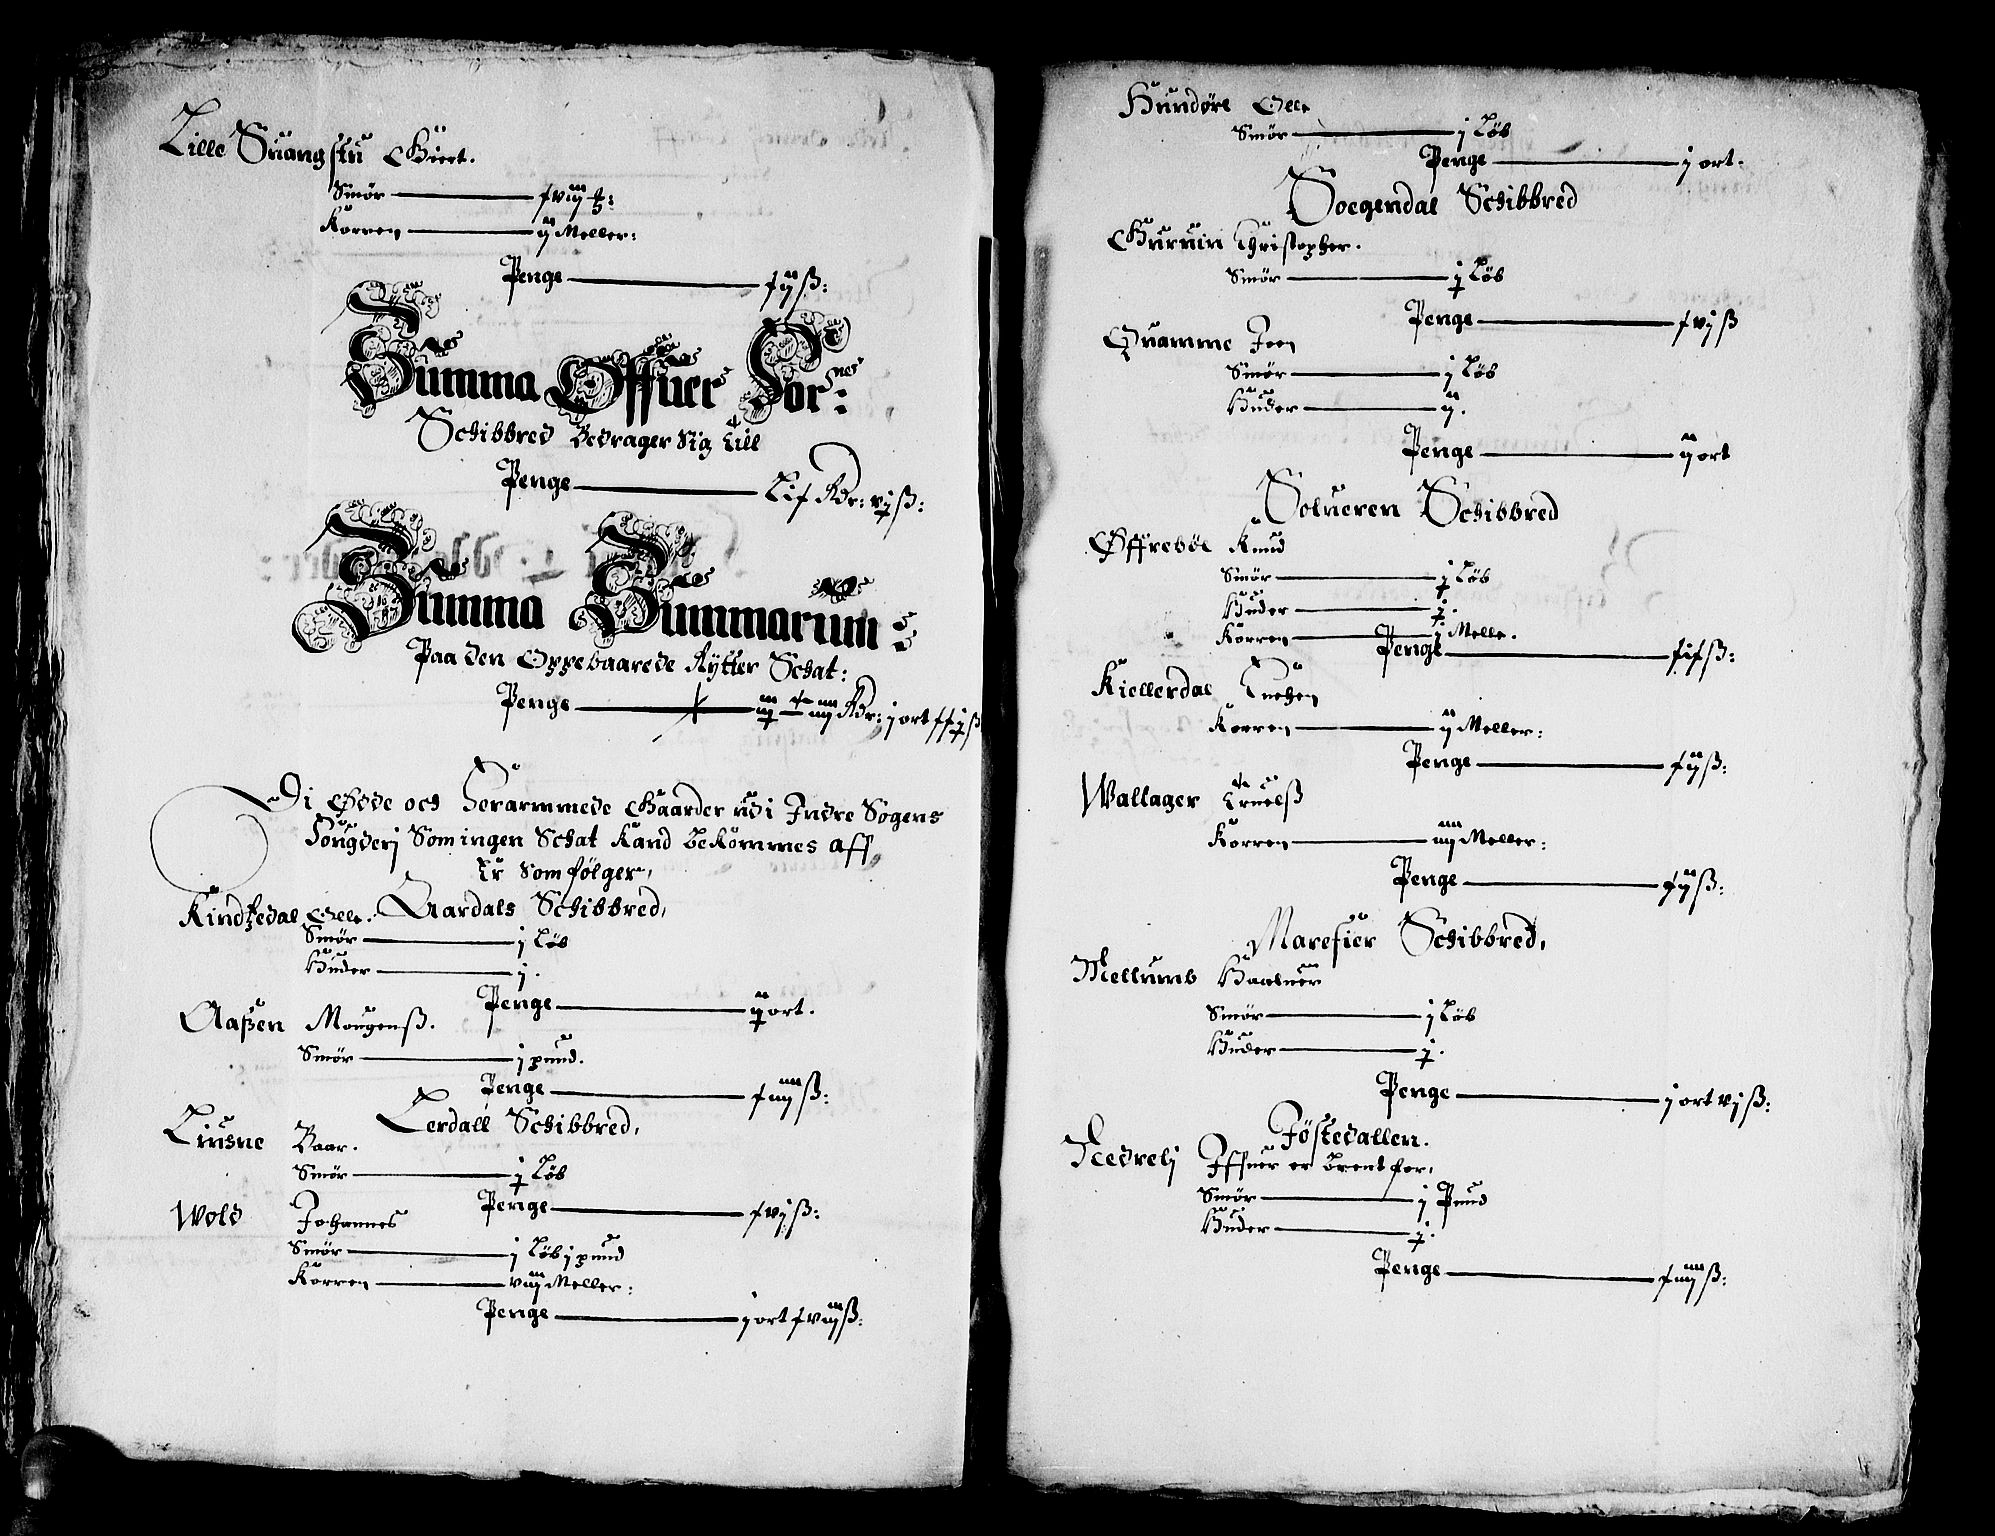 Lille Suangstu Giert.
Smør — xviij ℔:
Korren — ij Meller:
Penge — xijß:
Summa Offuer For:nes
Schibbred Bedrager sig till
Penge — Lix Rdr: vjß:
Summa Summarum:
Paa den Oppebaarede Rytter Schat:
Penge — Rdr: j ort xxjß
Di Øde och forarmmede Gaarder udi Indre Sogens
fougderj Som ingen Schat Kand bekommes aff
Er Som følger,
Aardals Schibbred,
Kindzedal Oelle.
Smør — j Løb
Huder — j.
Penge — ij ort.
Aaßen Mougenß.
Smør — j pund.
Penge — xiiijß:
Lerdall Schibbred,
Liusne Baar.
Smør — j Løb
Penge — xvjß:
Wold Johannes
Smør — j Løb j pund
Korren — viij Meller:
Penge — j ort xviijß:
Hundøre Oelle
Smør — j Løb
Penge — j ort.
Soegendal Schibbred
Guruin Christopher.
Smør — j Løb
Penge — xvjß
Quamme Joen
Smør — j Løb
Huder — ij.
Penge — ij ort
Solueren Schibbred
Øffrebøe Knud
Smør — j Løb
Huder — j.
Korren — j Melle.
Penge — xixß:
Kiellerdal
Korren — ij Meller:
Penge — xijß:
Wallager Truelß
Korren — iiij Meller:
Penge — xijß:
Marefier Schibbred,
Mellums Haaluer
Smør — j Løb
Huder — j.
Penge — j ort vjß:
Jøstedallen.
Nedrelj Iffuer er brent for,
Smør — j Pund
Huder — j.
Penge — xiiijß: